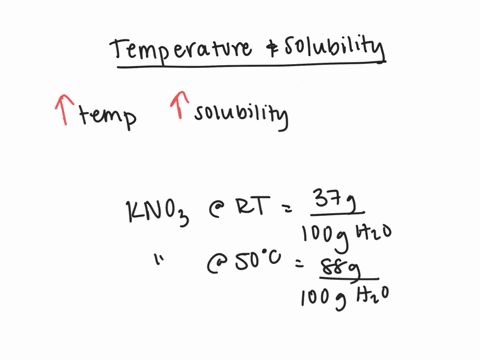 Temperature & Solubility
↑ temp ↑ solubility
KNO₃ @ RT = 37g
100g H₂O
" @ 50°C = 88g
100g H₂O